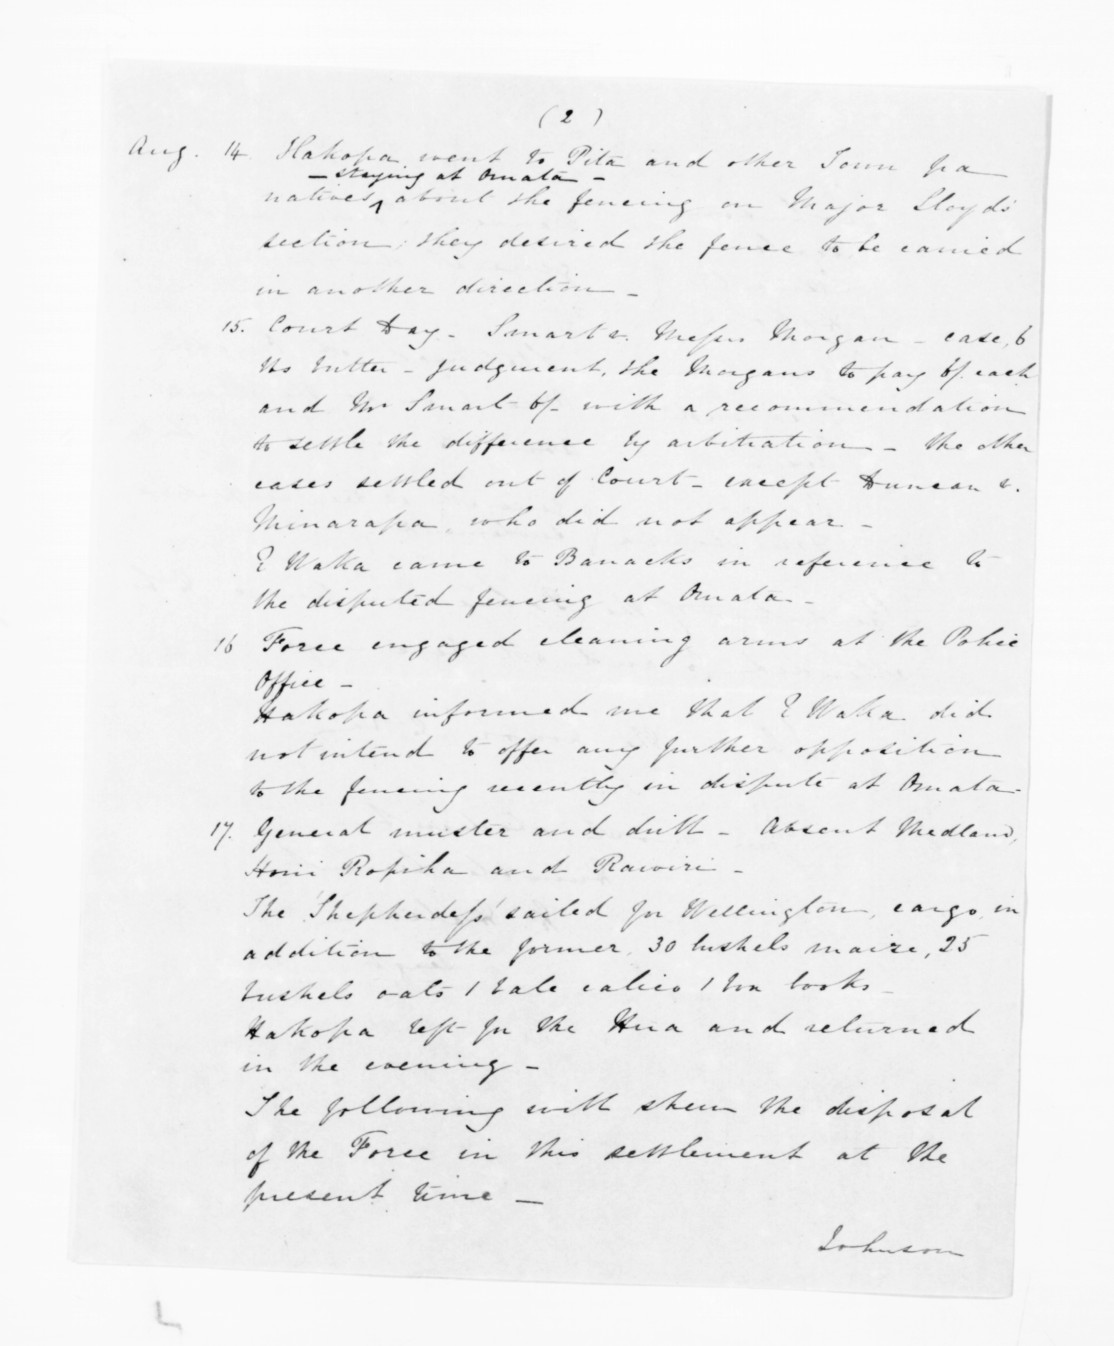 (2)
Aug. 14 Hakopa went to Pita and other Town pa
- staying at Omata -
natives ^ about the fencing on Major Lloyd's
section; they desired the fence to be carried
in another direction -
15. Court Day - Smart v. Messrs Morgan - case, 6
lbs butter - judgment, the Morgans to pay 6/- each
and Mr Smart 6/- with a recommendation
to settle the difference by arbitration - the other
cases settled out of Court - except Duncan v.
Minarapa, who did not appear -
E Waka came to Banacks in reference to
the disputed fencing at Omata -
16 Force engaged cleaning arms at the Police
Office -
Hakopa informed me that E Waka did
not intend to offer any further opposition
to the fencing recently in dispute at Omata -
17. General muster and drill - Absent Medland,
Honi Ropiha and Rawiri -
The 'Shepherdess' sailed for Wellington, cargo in
addition to the former, 30 bushels maize, 25
bushels oats 1 bale calico 1 box books -
Hakopa left for the Hua and returned
in the evening -
The following will shew the disposal
of the Force in this settlement at the
present time -
Johnson